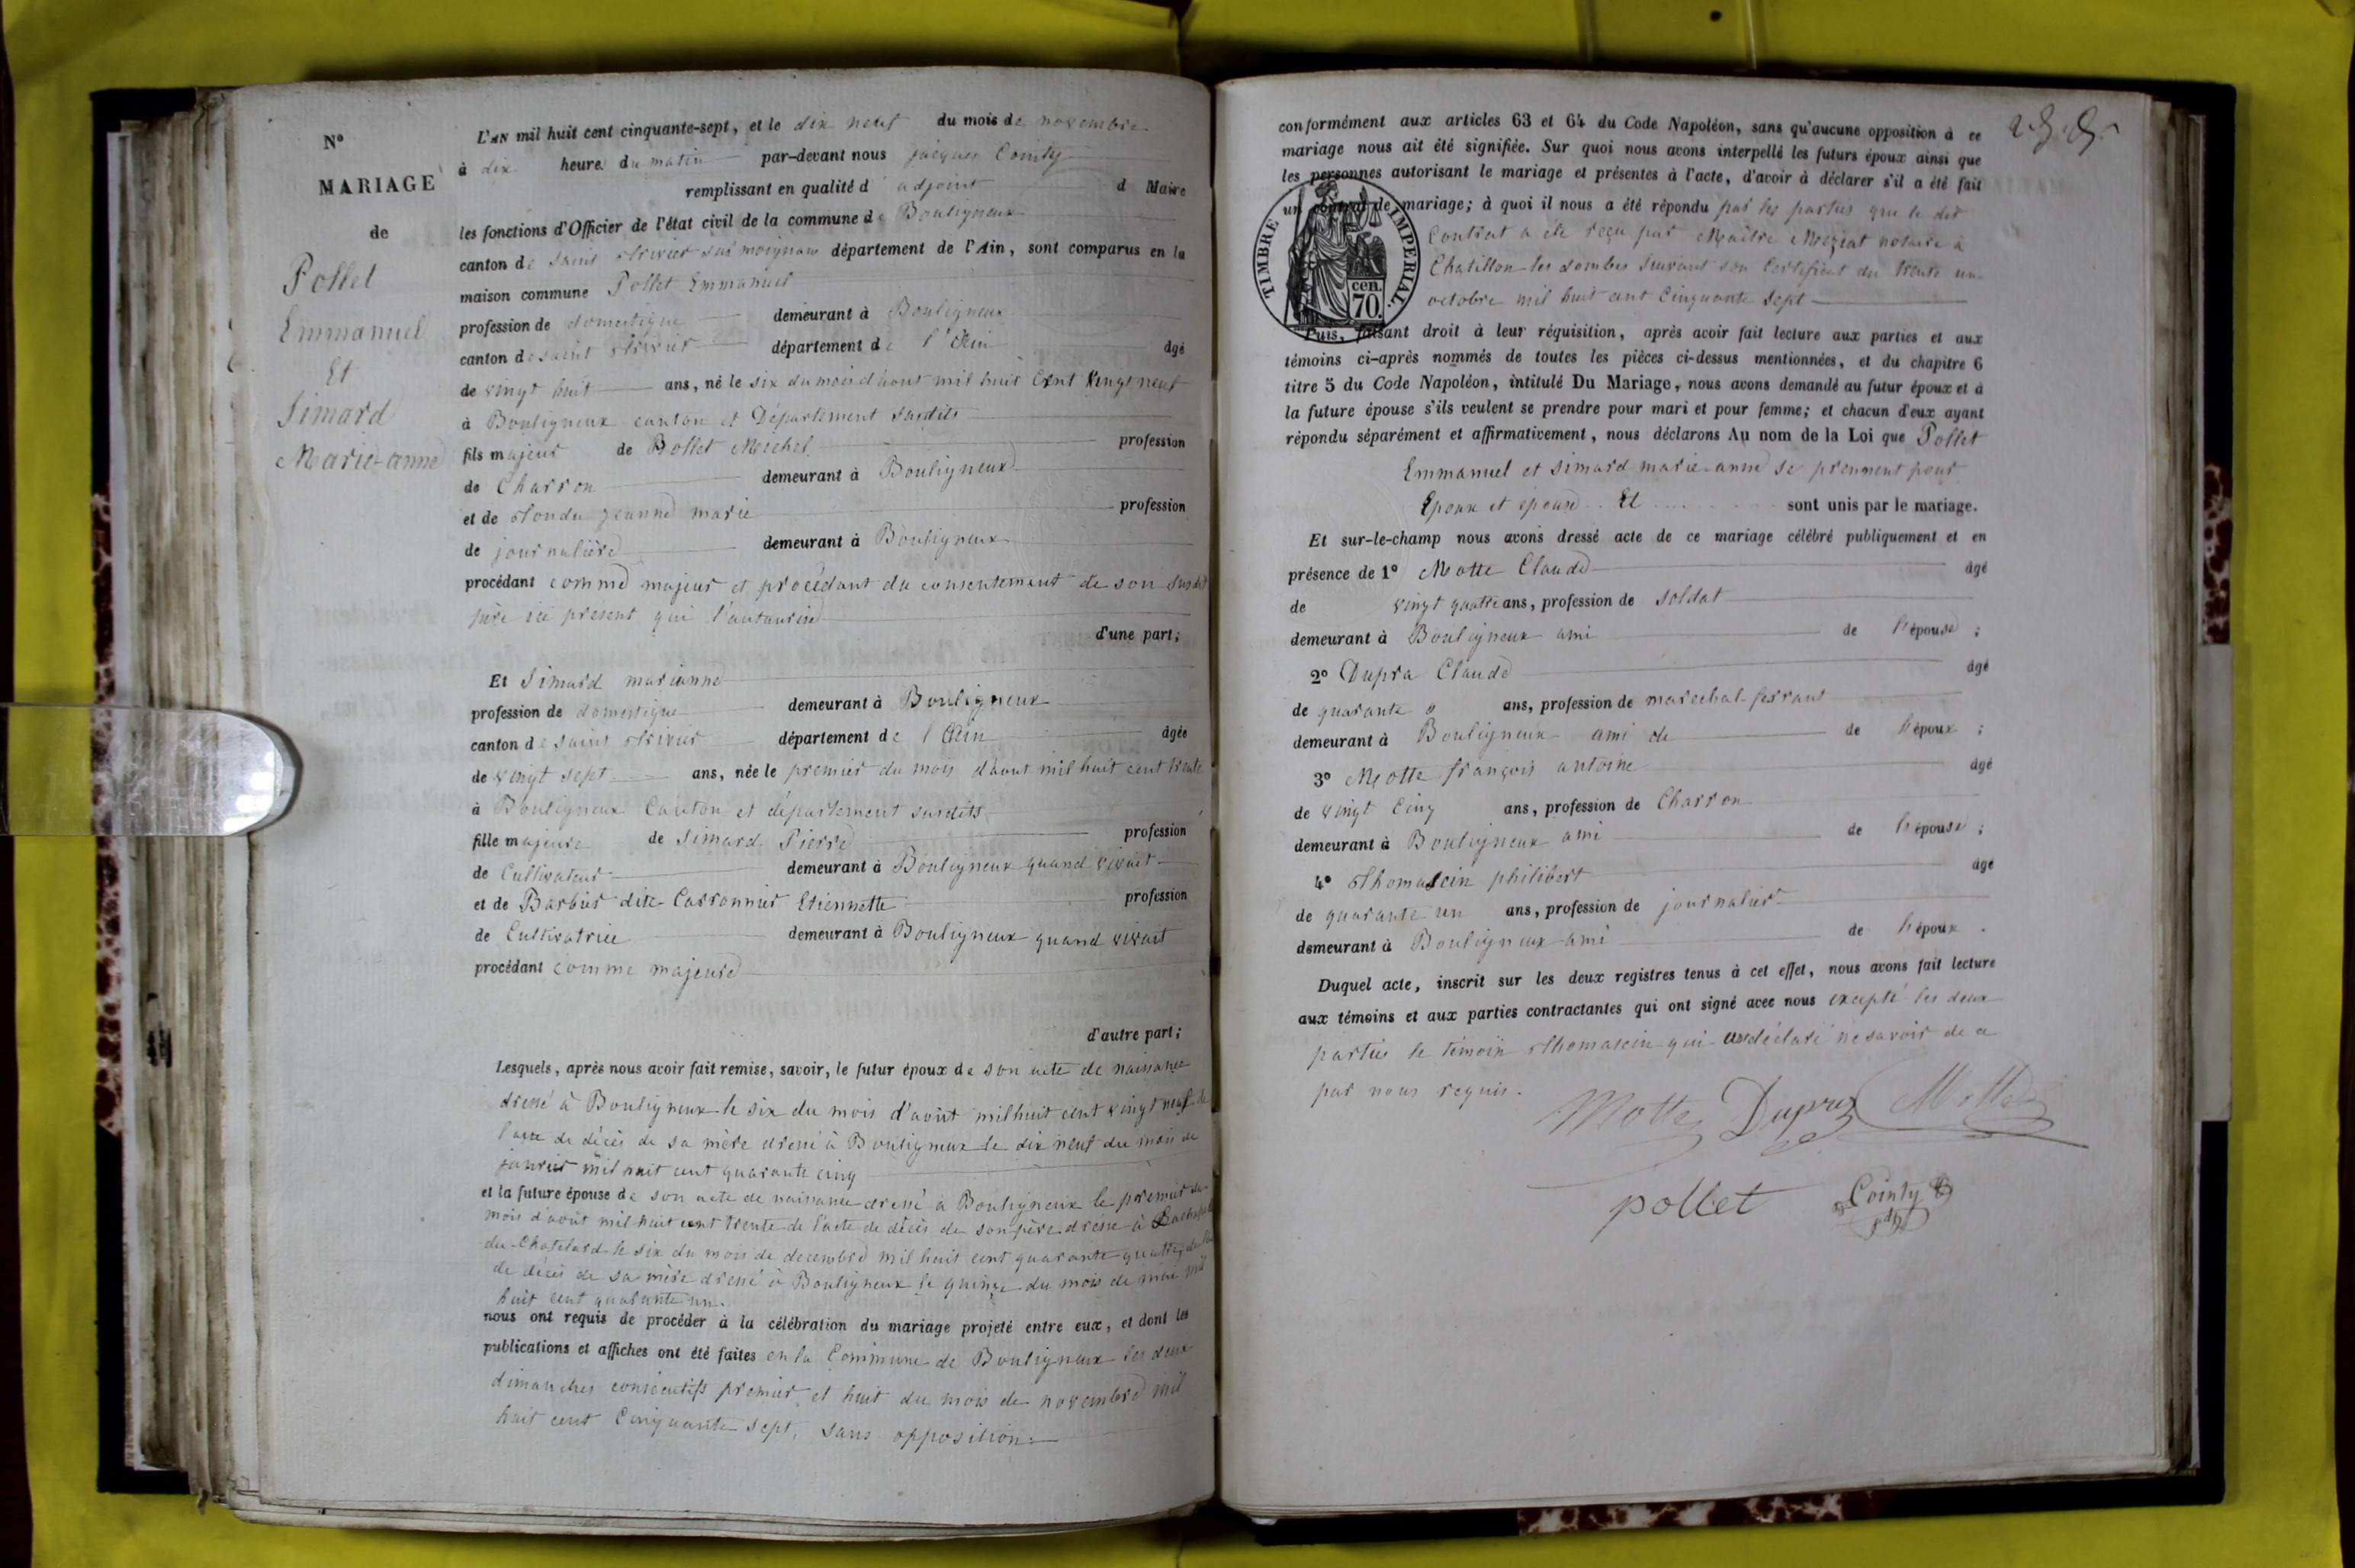 N°
MARIAGE
de
Pollet
Emmanuel
Et
Simard
Marie-anne
L'AN mil huit cent cinquante-sept, et le dix neuf du mois de novembre
à dix heure du matin par-devant nous jacques Cointy
remplissant en qualité d'adjoint d Maire
les fonctions d'Officier de l'état civil de la commune de Bouligneux
canton de saint trivier sur moignans département de l'Ain, sont comparus en la
maison commune Pollet Emmanuel
profession de domestique demeurant à Bouligneux
canton de saint trivier département de l'Ain âgé
de vingt huit ans, né le six du mois d'aout mil huit Cent vingt neuf
à Bouligneux canton et Département susdits
fils majeur de Pollet Michel profession
de Charron demeurant à Bouligneux
et de Tondu jeanne marie profession
de journalière demeurant à Bouligneux
procédant comme majeur et procédant du consentement de son susdit
père ici present qui l'autaurise
d'une part;
Et Simard marianne
profession de domestique demeurant à Bouligneux
canton de saint trivier département de l'Ain âgée
de vingt sept ans, née le premier du mois d'aout mil huit cent trente
à Bouligneux Canton et département susdits
fille majeure de Simard Pierre profession
de Cultivateur demeurant à Bouligneux quand vivait
et de Barbier dite Carronnier Etiennette profession
de Cultivatrice demeurant à Bouligneux quand vivait
procédant comme majeure
d'autre part;
Lesquels, après nous avoir fait remise, savoir, le futur époux de son acte de naissance
dressé à Bouligneux le six du mois d'août mil huit cent vingt neuf de
l'acte de décès de sa mère dressé à Bouligneux le dix neuf du mois de
janvier mil huit cent quarante cinq
et la future épouse de son acte de naissance dressé à Bouligneux le premier du
mois d'août mil huit cent trente de l'acte de décès de son père dressé à
du Chatelard le six du mois de decembre mil huit cent quarante quatre,
de décès de sa mère dressé à Bouligneux le quinze du mois de mai mil
huit cent quarante un.
nous ont requis de procéder à la célébration du mariage projeté entre eux, et dont les
publications et affiches ont été faites en la Commune de Bouligneux les deux
dimanches consécutifs premier et huit du mois de novembre mil
huit cent Cinquante sept, sans opposition.
conformément aux articles 63 et 64 du Code Napoléon, sans qu'aucune opposition à ce
mariage nous ait été signifiée. Sur quoi nous avons interpellé les futurs époux ainsi que
les personnes autorisant le mariage et présentes à l'acte, d'avoir à déclarer s'il a été fait
un contrat de mariage; à quoi il nous a été répondu par les parties que le dit
Contrat a été reçu par Maître Meziat notaire à
Chatillon les dombes suivant son Certificat du trente un
octobre mil huit cent Cinquante sept
TIMBRE IMPERIAL.
70 cen.
Puis, faisant droit à leur réquisition, après avoir fait lecture aux parties et aux
témoins ci-après nommés de toutes les pièces ci-dessus mentionnées, et du chapitre 6
titre 5 du Code Napoléon, intitulé Du Mariage, nous avons demandé au futur époux et à
la future épouse s'ils veulent se prendre pour mari et pour femme; et chacun d'eux ayant
répondu séparément et affirmativement, nous déclarons Au nom de la Loi que Pollet
Emmanuel et Simard marie-anne se prennent pour
Epoux et épouse Et sont unis par le mariage.
Et sur-le-champ nous avons dressé acte de ce mariage célébré publiquement et en
présence de 1° Motte Claude âgé
de vingt quatre ans, profession de soldat
demeurant à Bouligneux ami de l'épouse ;
2° Dupra Claude âgé
de quarante ans, profession de marechal ferrant
demeurant à Bouligneux ami de de l'époux ;
3° Motte françois antoine âgé
de vingt Cinq ans, profession de Charron
demeurant à Bouligneux ami de l'épouse ;
4° Thomassin philibert âgé
de quarante un ans, profession de journalier
demeurant à Bouligneux ami de l'époux .
Duquel acte, inscrit sur les deux registres tenus à cet effet, nous avons fait lecture
aux témoins et aux parties contractantes qui ont signé avec nous excepté les deux
parties le témoin Thomassin qui déclaré ne savoir de ce
par nous requis.
Motte Dupras Motte
pollet Cointy